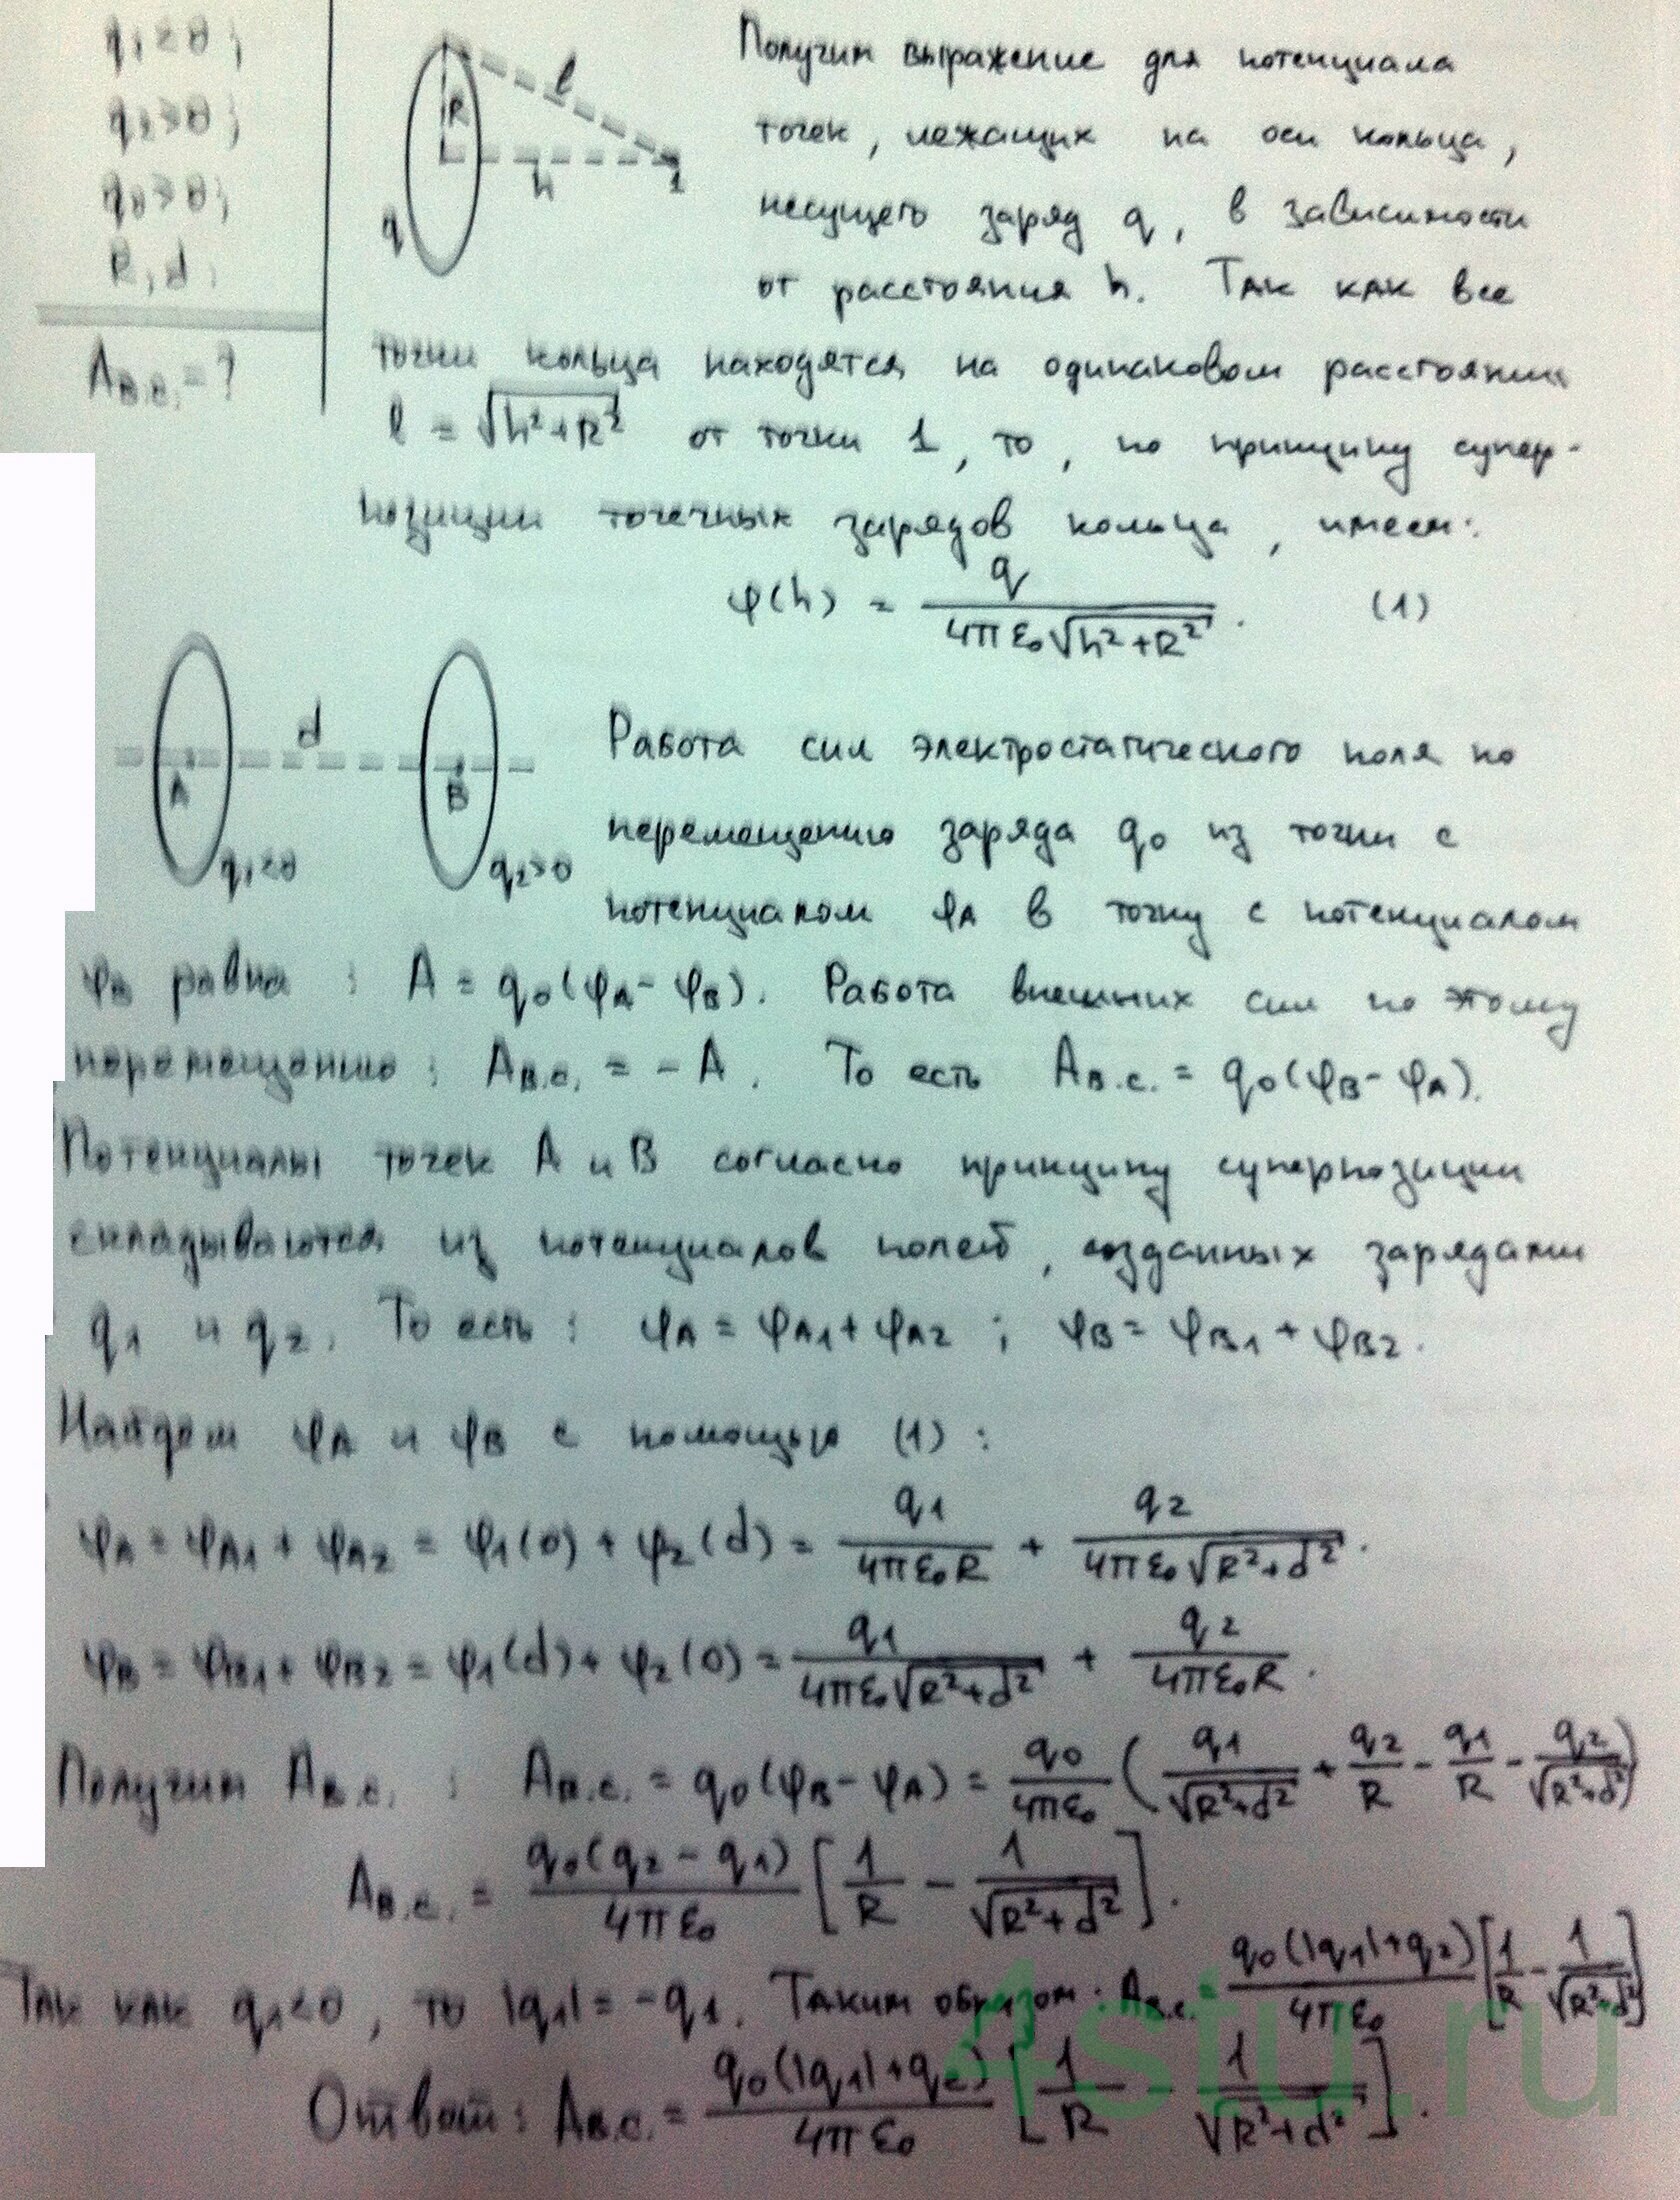 q₁<0;
q₂>0;
q₀>0;
R, d.
Aв.с. = ?
R
l
h
1
q
Получим выражение для потенциала
точек, лежащих на оси кольца,
несущего заряд q, в зависимости
от расстояния h. Так как все
точки кольца находятся на одинаковом расстоянии
l = √(h²+R²) от точки 1, то, по принципу супер-
позиции точечных зарядов кольца, имеем:
φ(h) = q / (4πε₀√(h²+R²)). (1)
A
d
B
q₁<0
q₂>0
Работа сил электростатического поля по
перемещению заряда q₀ из точки с
потенциалом φA в точку с потенциалом
φB равна: A = q₀(φA - φB). Работа внешних сил по этому
перемещению: Aв.с. = - A. То есть Aв.с. = q₀(φB - φA).
Потенциалы точек A и B согласно принципу суперпозиции
складываются из потенциалов полей, созданных зарядами
q₁ и q₂. То есть: φA = φA1 + φA2; φB = φB1 + φB2.
Найдем φA и φB с помощью (1):
φA = φA1 + φA2 = φ₁(0) + φ₂(d) = q₁ / (4πε₀R) + q₂ / (4πε₀√(R²+d²)).
φB = φB1 + φB2 = φ₁(d) + φ₂(0) = q₁ / (4πε₀√(R²+d²)) + q₂ / (4πε₀R).
Получим Aв.с.: Aв.с. = q₀(φB - φA) = q₀ / (4πε₀) (q₁/√(R²+d²) + q₂/R - q₁/R - q₂/√(R²+d²))
Aв.с. = q₀(q₂ - q₁) / (4πε₀) [1/R - 1/√(R²+d²)].
Так как q₁<0, то |q₁| = -q₁. Таким образом: Aв.с. = q₀(|q₁|+q₂) / (4πε₀) [1/R - 1/√(R²+d²)]
Ответ: Aв.с. = q₀(|q₁|+q₂) / (4πε₀) [1/R - 1/√(R²+d²)].
4stu.ru